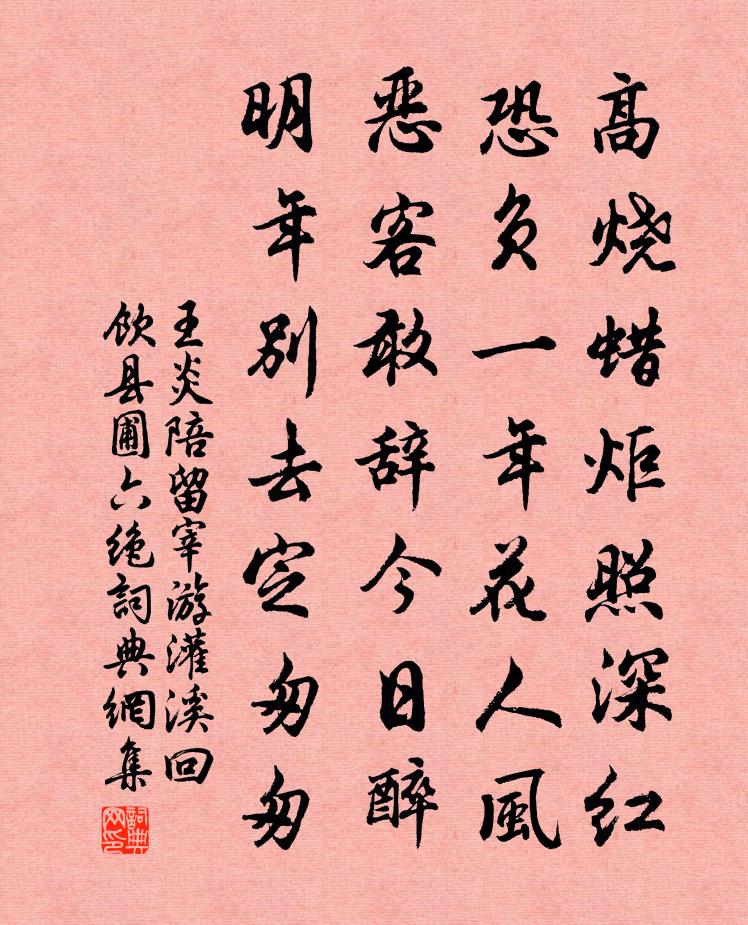 高烧蜡炬照深红
恐负一年花人風
恶客敢辞今日醉
明年别去定匆匆
王炎陪留宰游灌溪回
饮县圃六绝詞典網集
詞典
网印